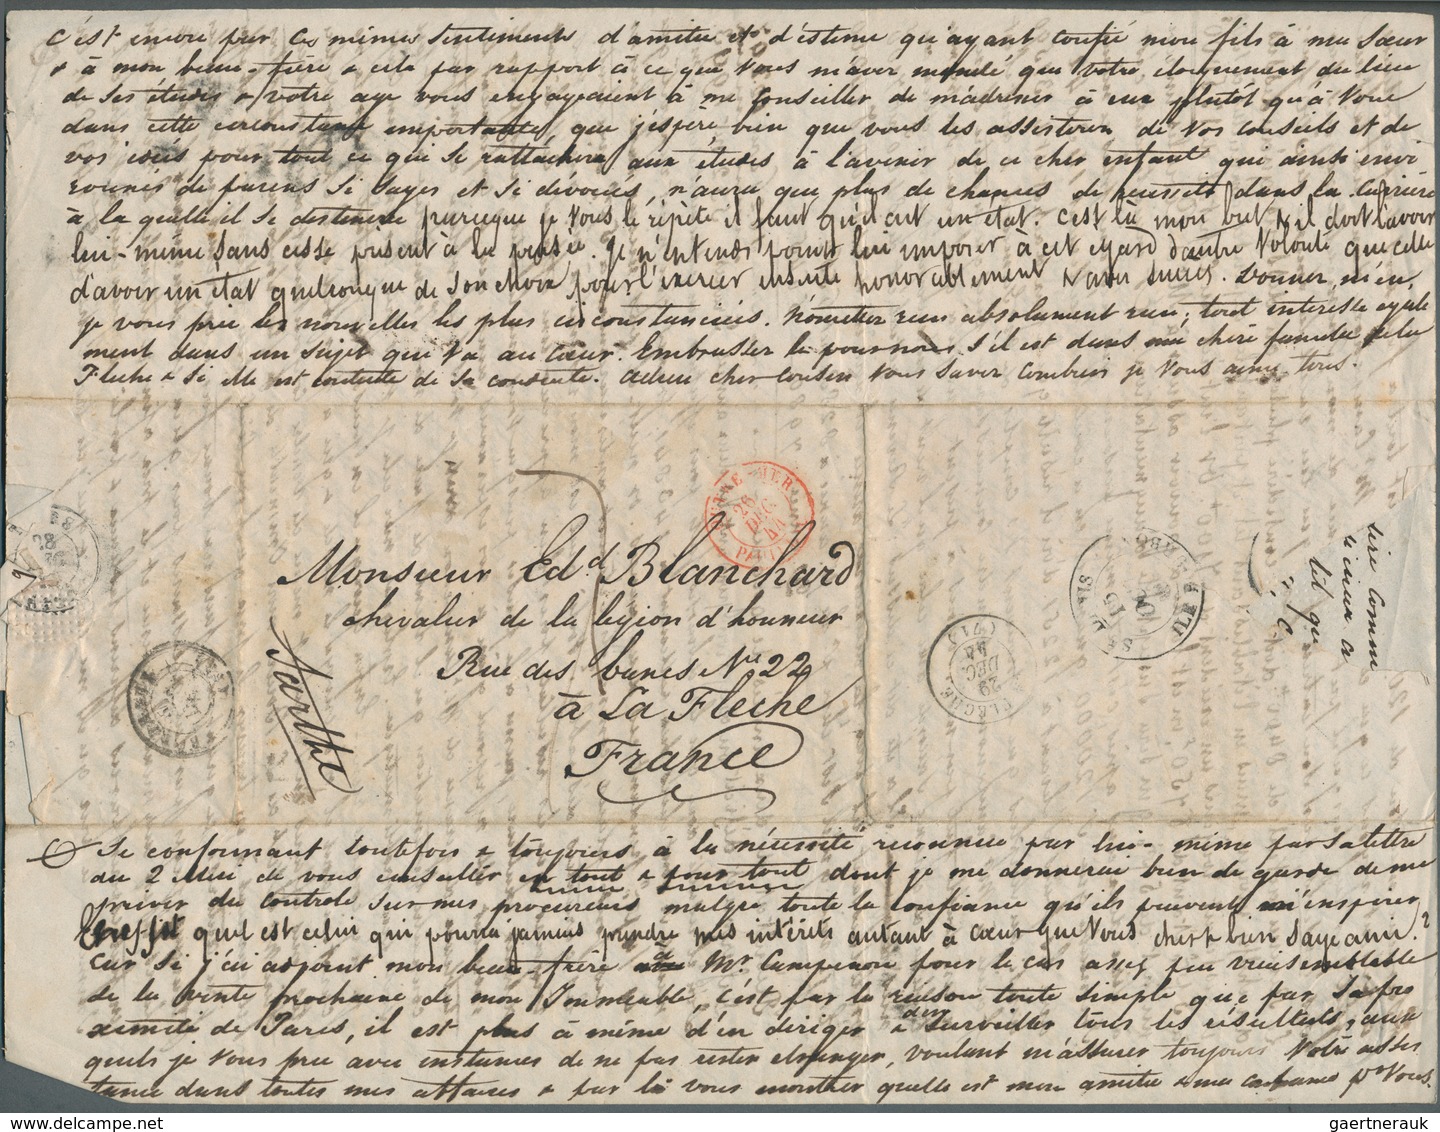 c'est encore par ces mêmes sentiments d'amitié & d'estime qu'ayant confié mon fils à ma sœur
& à mon beau-frère & cela par rapport à ce que vous m'avez mandé que votre éloignement du lieu
de ses études & votre age vous engageaient à me conseiller de m'adresser à eux plutôt qu'à vous
dans cette circonstance importante, que j'espère bien que vous les assisterez de vos conseils et de
vos idées pour tout ce qui se rattachera aux études à l'avenir de ce cher enfant qui ainsi envi
ronnés de parens si sages et si dévoués, n'aura que plus de chances de réussite dans la carrière
à la quelle il se destinera parceque je vous le répète il faut qu'il ait un état. c'est là mon but & il doit l'avoir
lui-même sans cesse présent à la pensée. Je n'entends point lui imposer à cet egard d'autre volonté que celle
d'avoir un état quelconque de son choix pour l'exercer ensuite honorablement & avec succès. Donnez m'en,
je vous prie les nouvelles les plus circonstanciées. N'omettez rien absolument rien; tout interesse egale
ment dans un sujet qui va au cœur. Embrassez le pour nous s'il est dans ma chère famille de la
Fleche & si elle est contente de sa conduite. Adieu cher Cousin vous savez combien je vous aime tous.
OUTRE MER
26
DEC
44
Monsieur Ed.d Blanchard
chevalier de la légion d'honneur
Rue des bancs No 22
à La Fleche
France
Sarthe
LA FLÈCHE
29
DEC.
44
(71)
lire comme
il que
Se conformant toutefois & toujours à la nécessité reconnue par lui-même par sa lettre
du 2 Mai de vous consulter en tout & pour tout dont je me donnerai bien de garde de me
priver du controle sur mes procureurs malgré toute la confiance qu'ils peuvent m'inspirer
En effet quel est celui qui pourra jamais prendre mes intérêts autant à cœur que vous cher & bien sage ami?
Car si j'ai adjoint mon beau-frère à Mr. Campenon pour le cas assez peu vraisemblable
de la vente prochaine de mon Immeuble, c'est par la raison toute simple que par sa pro
ximité de Paris, il est plus à même d'en diriger & d'en surveiller tous les résultats, aux
quels je vous prie avec instances de ne pas rester etranger, voulant m'assurer toujours votre assis
tance dans toutes mes affaires & par là vous montrer quelle est mon amitié & ma confiance pr Vous.
gaertnerauk